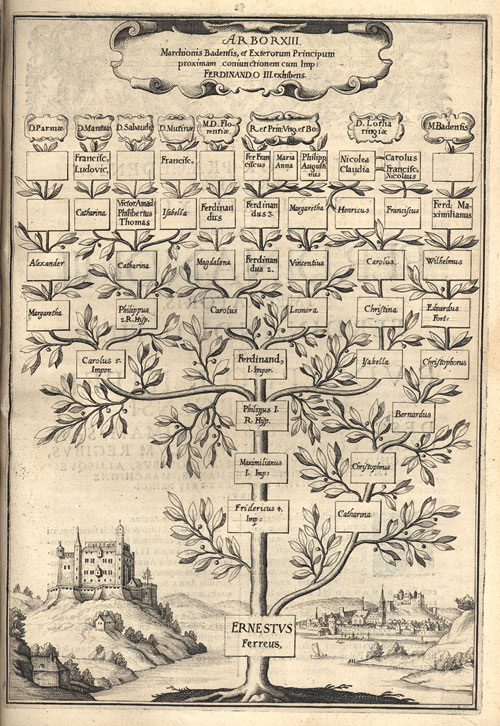 ARBOR XIII.
Marchionis Badensis, et Exterorum Principum
proximam coniunctionem cum Imp:
FERDINANDO III. exhibens.
D. Parmæ
D. Mantuæ
D. Sabaudiæ
D. Mutinæ
M.D. Flo-
rentiæ
R. et Prin: Vng. et Bo:
D. Lotha
ringiæ
M. Badensis
Francisc,
Ludovic,
Francisc,
Fer Fran
ciscus
Maria
Anna
Philipp
Augusti-
nus
Nicolea
Claudia
Carolus
Francisc,
Nicolaus
Catharina
Victor Amad
Philibertus
Thomas
Isabella
Ferdinan
dus
Ferdinan
dus 3.
Margaretha
Henricus
Franciscus
Ferd: Ma-
ximilianus
Alexander
Catharina
Magdalena
Ferdinan
dus 2.
Vincentius
Carolus,
Wilhelmus
Margaretha
Philippus
2. R. Hisp.
Carolus
Leonora
Christina
Eduardus
Fort:
Carolus 5.
Imper.
Ferdinand,
I. Imper.
Isabella
Christophorus
Philipus I.
R. Hisp.
Bernardus
Maximilianus
I. Imp:
Christophrus
Fridericus 4.
Imp:
Catharina
ERNESTVS
Ferreus,